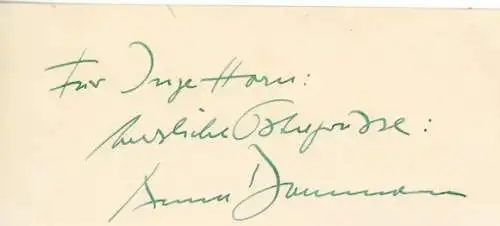 Für Inge Horn:
herzliche Ostergrüsse:
Anna Dammann